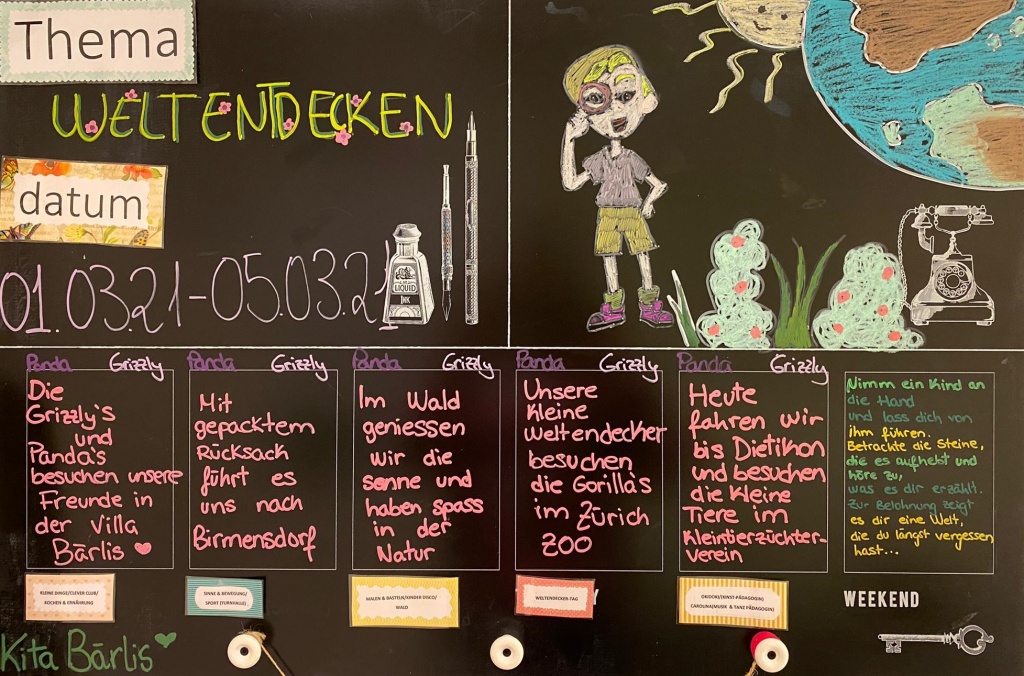 Thema
WELTENTDECKEN
datum
01.03.21-05.03.21
LIQUID
INK
Panda Grizzly
Die
Grizzly's
und
Panda's
besuchen unsere
Freunde in
der Villa
Bärlis
Panda Grizzly
Mit
gepacktem
Rücksack
führt es
uns nach
Birmensdorf
Panda Grizzly
Im Wald
geniessen
wir die
sonne und
haben spass
in der
Natur
Panda Grizzly
Unsere
kleine
Weltendecker
besuchen
die Gorilla's
im Zürich
ZOO
Panda Grizzly
Heute
fahren wir
bis Dietikon
und besuchen
die kleine
Tiere im
Kleintierzüchter-
verein
Nimm ein Kind an
die Hand
und lass dich von
ihm führen.
Betrachte die Steine,
die es aufhebt und
höre zu,
was es dir erzählt.
Zur Belohnung zeigt
es dir eine Welt,
die du längst vergessen
hast...
KLEINE DINGE/CLEVER CLUB/
KOCHEN & ERNÄHRUNG
SINNE & BEWEGUNG/
SPORT (TURNHALLE)
MALEN & BASTELN/KINDER DISCO/
WALD
WELTENDECKER-TAG
CAROLINA(MUSIK & TANZ PÄDAGOGIN)
WEEKEND
Kita Bärlis